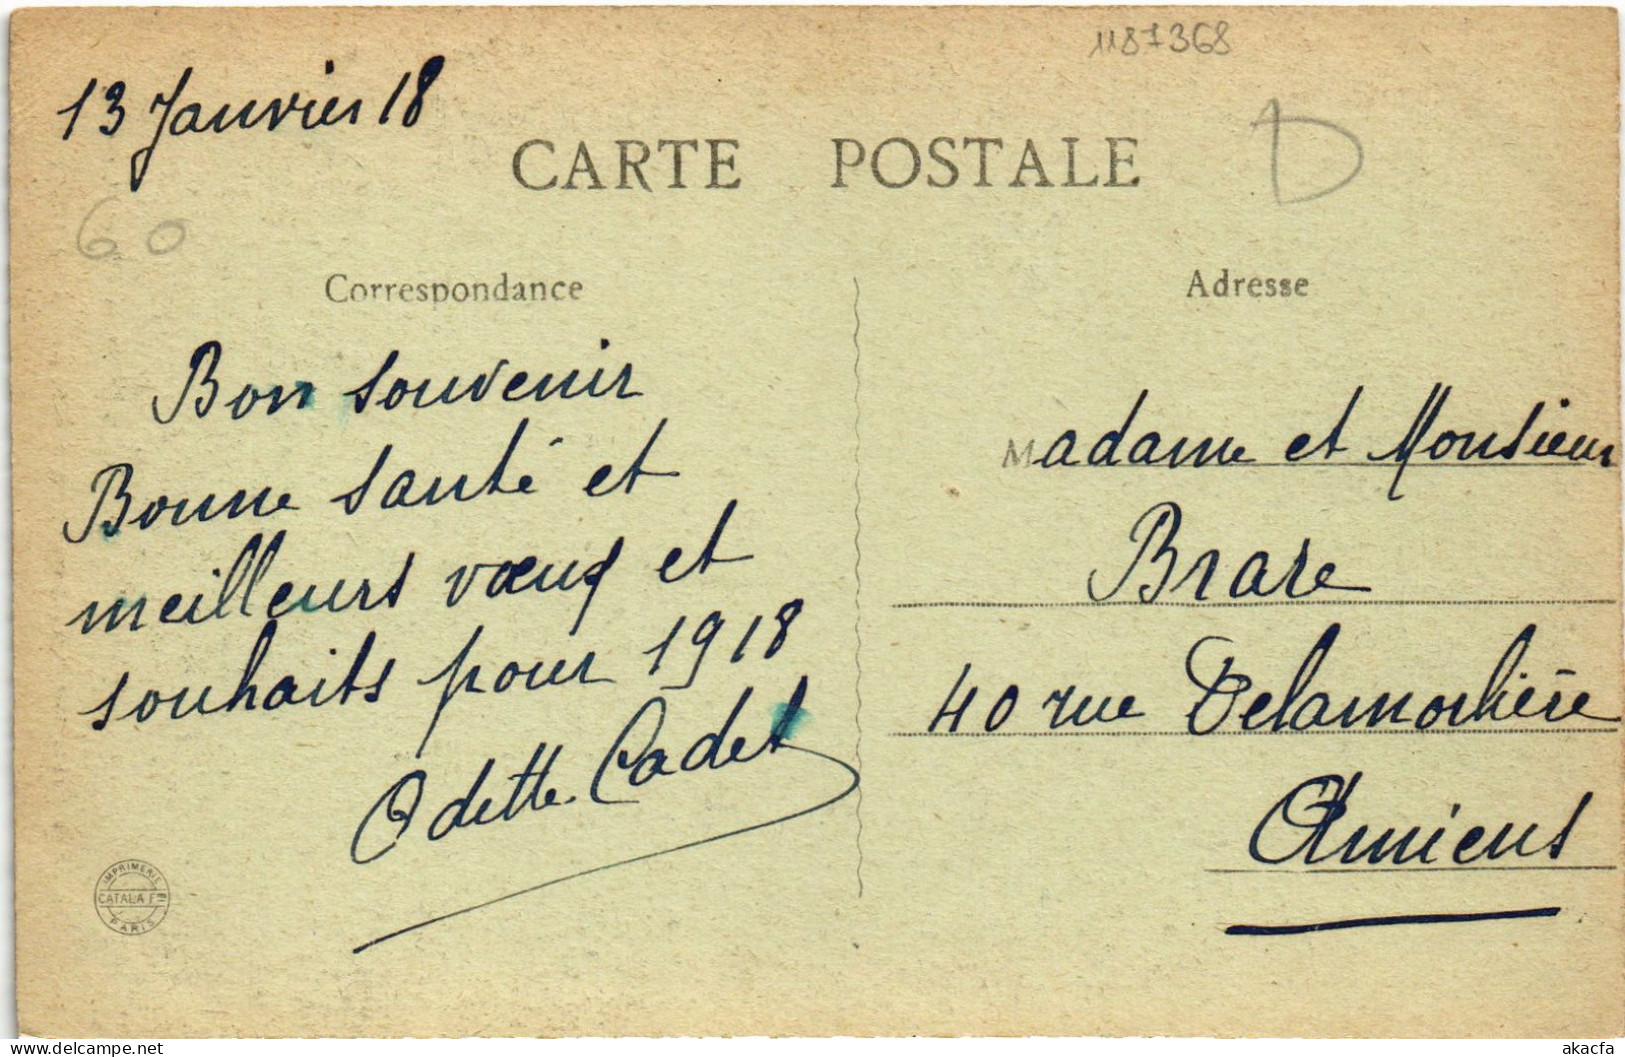 1187368
13 Janvier 18
CARTE POSTALE
D
60
Correspondance
Adresse
Bon souvenir
Bonne santé et
meilleurs vœux et
souhaits pour 1918
Odette Cadet
Madame et Monsieur
Brare
40 rue Delamorlière
Amiens
IMPRIMERIE
CATALA Frères
PARIS
akacfa